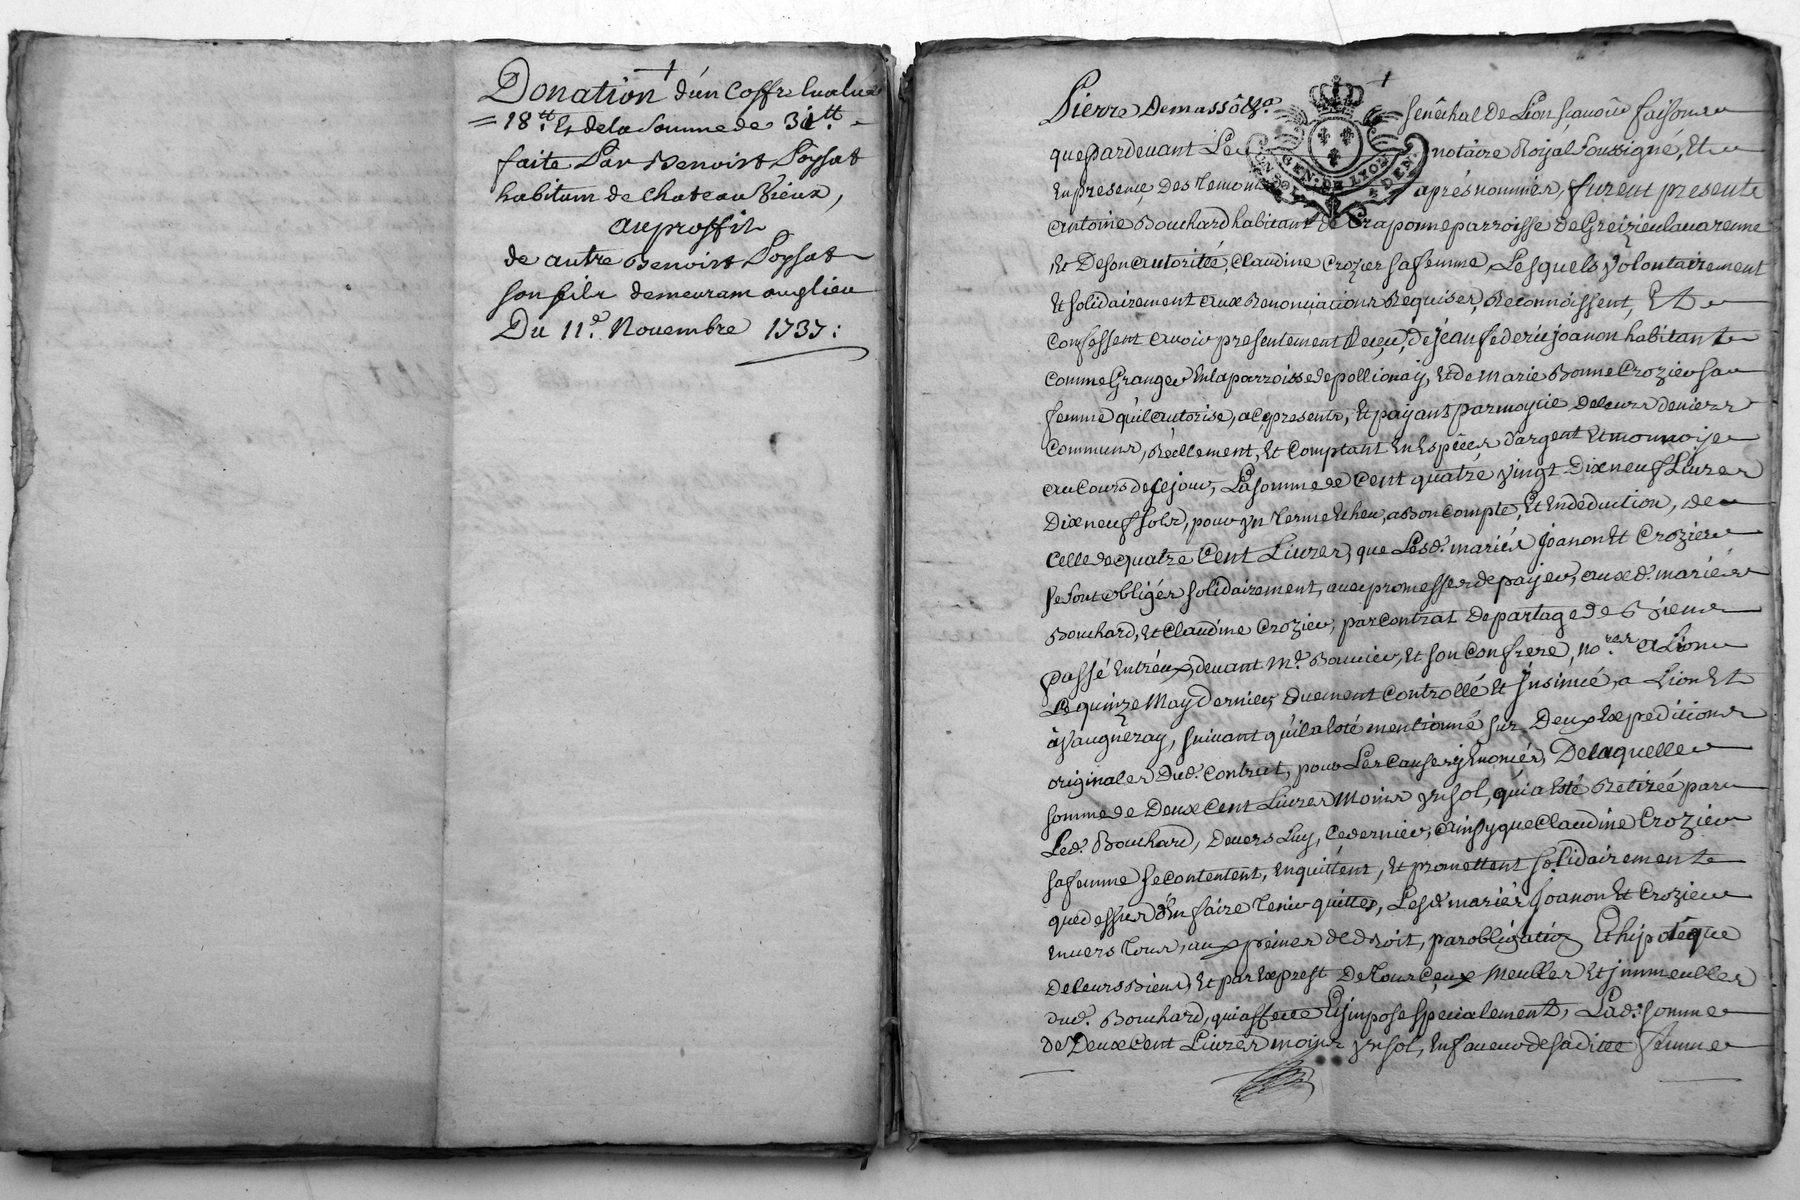 Donation d'un Coffre Evalué
= 18.tt Et de la Somme de 31.tt
faite Par Benoist Poysat
habitant de Chateau Vieux,
au proffit
de autre Benoist Poysat
son fils demeurant au glieu
Du 11.e Novembre 1737:
Pierre Demassô
Senêchal de Lion sçavoir faisons
que pardevant Le
notaire Roÿal soussigné, Et
En presençe Des Temoins
aprés nommés, furent presents
Antoine Bouchard habitant de Craponne parroisse de Greizieu la varenne
Et De son autorittée, Claudine Crozier sa femme, Lesquels volontairement
Et solidairement aux Renonciations Requises, Reconnoissent, Et
Confessent avoir presentement Reçeu, de jean féderic joanon habitant
comme Granger En la parroisse de pollionaÿ, Et de Marie Bonne Crozier sa
femme qu'il autorise, açe presents, Et paÿants par moytié De leurs deniers
Communs, Réellement, Et Comptant En Espêces d'argent Et monnoÿe
au Cours de çe jour, La somme de Cent quatré vingt Dix neuf Livres
Dix neuf sols, pour yn terme Echeu, a Bon compte, Et En deduction, de
celle de quatre Cent Livres, que Lesd. mariés Joanon Et Crozier
se sont obligés solidairement, avec promesses de païer, aux d. mariés
Bouchard, Et Claudine Crozier, par Contrat De partage de Biens
passé Entréux, devant M.e Bourcier, Et son Confrere, no.res a Lion
Le quinze May Dernier, Duement Controllé Et Insinué, a Lion Et
à Vaugneray, suivant qu'il a Eté mentionné sur Deux Expeditions
originales Dud. Contrat, pour Les Causes y Enoncés, De laquelle
somme de Deux Cent Livres Moins yn sol, qui a Eté Retirée par
Led. Bouchard, Devers Luy, ce dernier, ainsy que Claudine Crozier
sa femme se contentent, Enquittent, Et promettent solidairement
que dessus d'En faire tenir quittes, Lesd. mariés Joanon Et Crozier
Envers tous, aux peines de droit, par obligation Et hipotéque
De leurs Biens, Et par Exprest De tous Çeux Meubles Et jmmeubles
dud. Bouchard, qui affecte Et jmpose specialement, Lad. somme
de Deux Cent Livres moins yn sol, En faveur de sa ditte femme
GEN. DE LYON